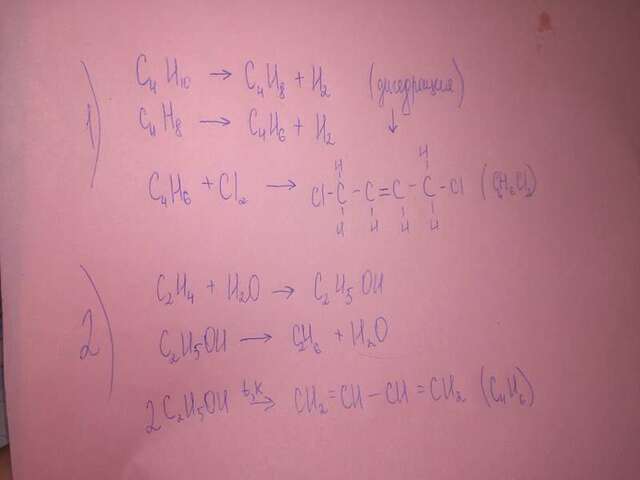 1) C₄H₁₀ → C₄H₈ + H₂ (дигедрация)
C₄H₈ → C₄H₆ + H₂ ↓
C₄H₆ + Cl₂ → Cl-C-C=C-C-Cl (C₄H₆Cl₂)
H H
H H H H
2) C₂H₄ + H₂O → C₂H₅OH
C₂H₅OH → C₂H₆ + H₂O
2C₂H₅OH t,k→ CH₂=CH-CH=CH₂ (C₄H₆)